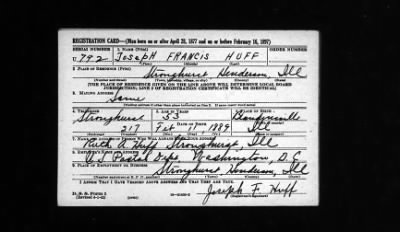 REGISTRATION CARD—(Men born on or after April 28, 1877 and on or before February 16, 1897)
SERIAL NUMBER 1. NAME (Print) ORDER NUMBER
U 792 JOSEPH FRANCIS HUFF
2. PLACE OF RESIDENCE (Print)
Stronghurst, Henderson, Ill
[THE PLACE OF RESIDENCE GIVEN ON THE LINE ABOVE WILL DETERMINE LOCAL BOARD
JURISDICTION; LINE 2 OF REGISTRATION CERTIFICATE WILL BE IDENTICAL]
3. MAILING ADDRESS
Same
4. TELEPHONE 5. AGE IN YEARS 6. PLACE OF BIRTH
Stronghurst 53 Blandinsville
DATE OF BIRTH
27 Feb 1889 Ill
7. NAME AND ADDRESS OF PERSON WHO WILL ALWAYS KNOW YOUR ADDRESS
Ruth A. Huff Stronghurst, Ill
8. EMPLOYER'S NAME AND ADDRESS
U.S. Postal Dept. Washington, D.C.
9. PLACE OF EMPLOYMENT OR BUSINESS
Stronghurst Henderson, Ill
I AFFIRM THAT I HAVE VERIFIED ABOVE ANSWERS AND THAT THEY ARE TRUE.
D. S. S. Form 1
Joseph F. Huff